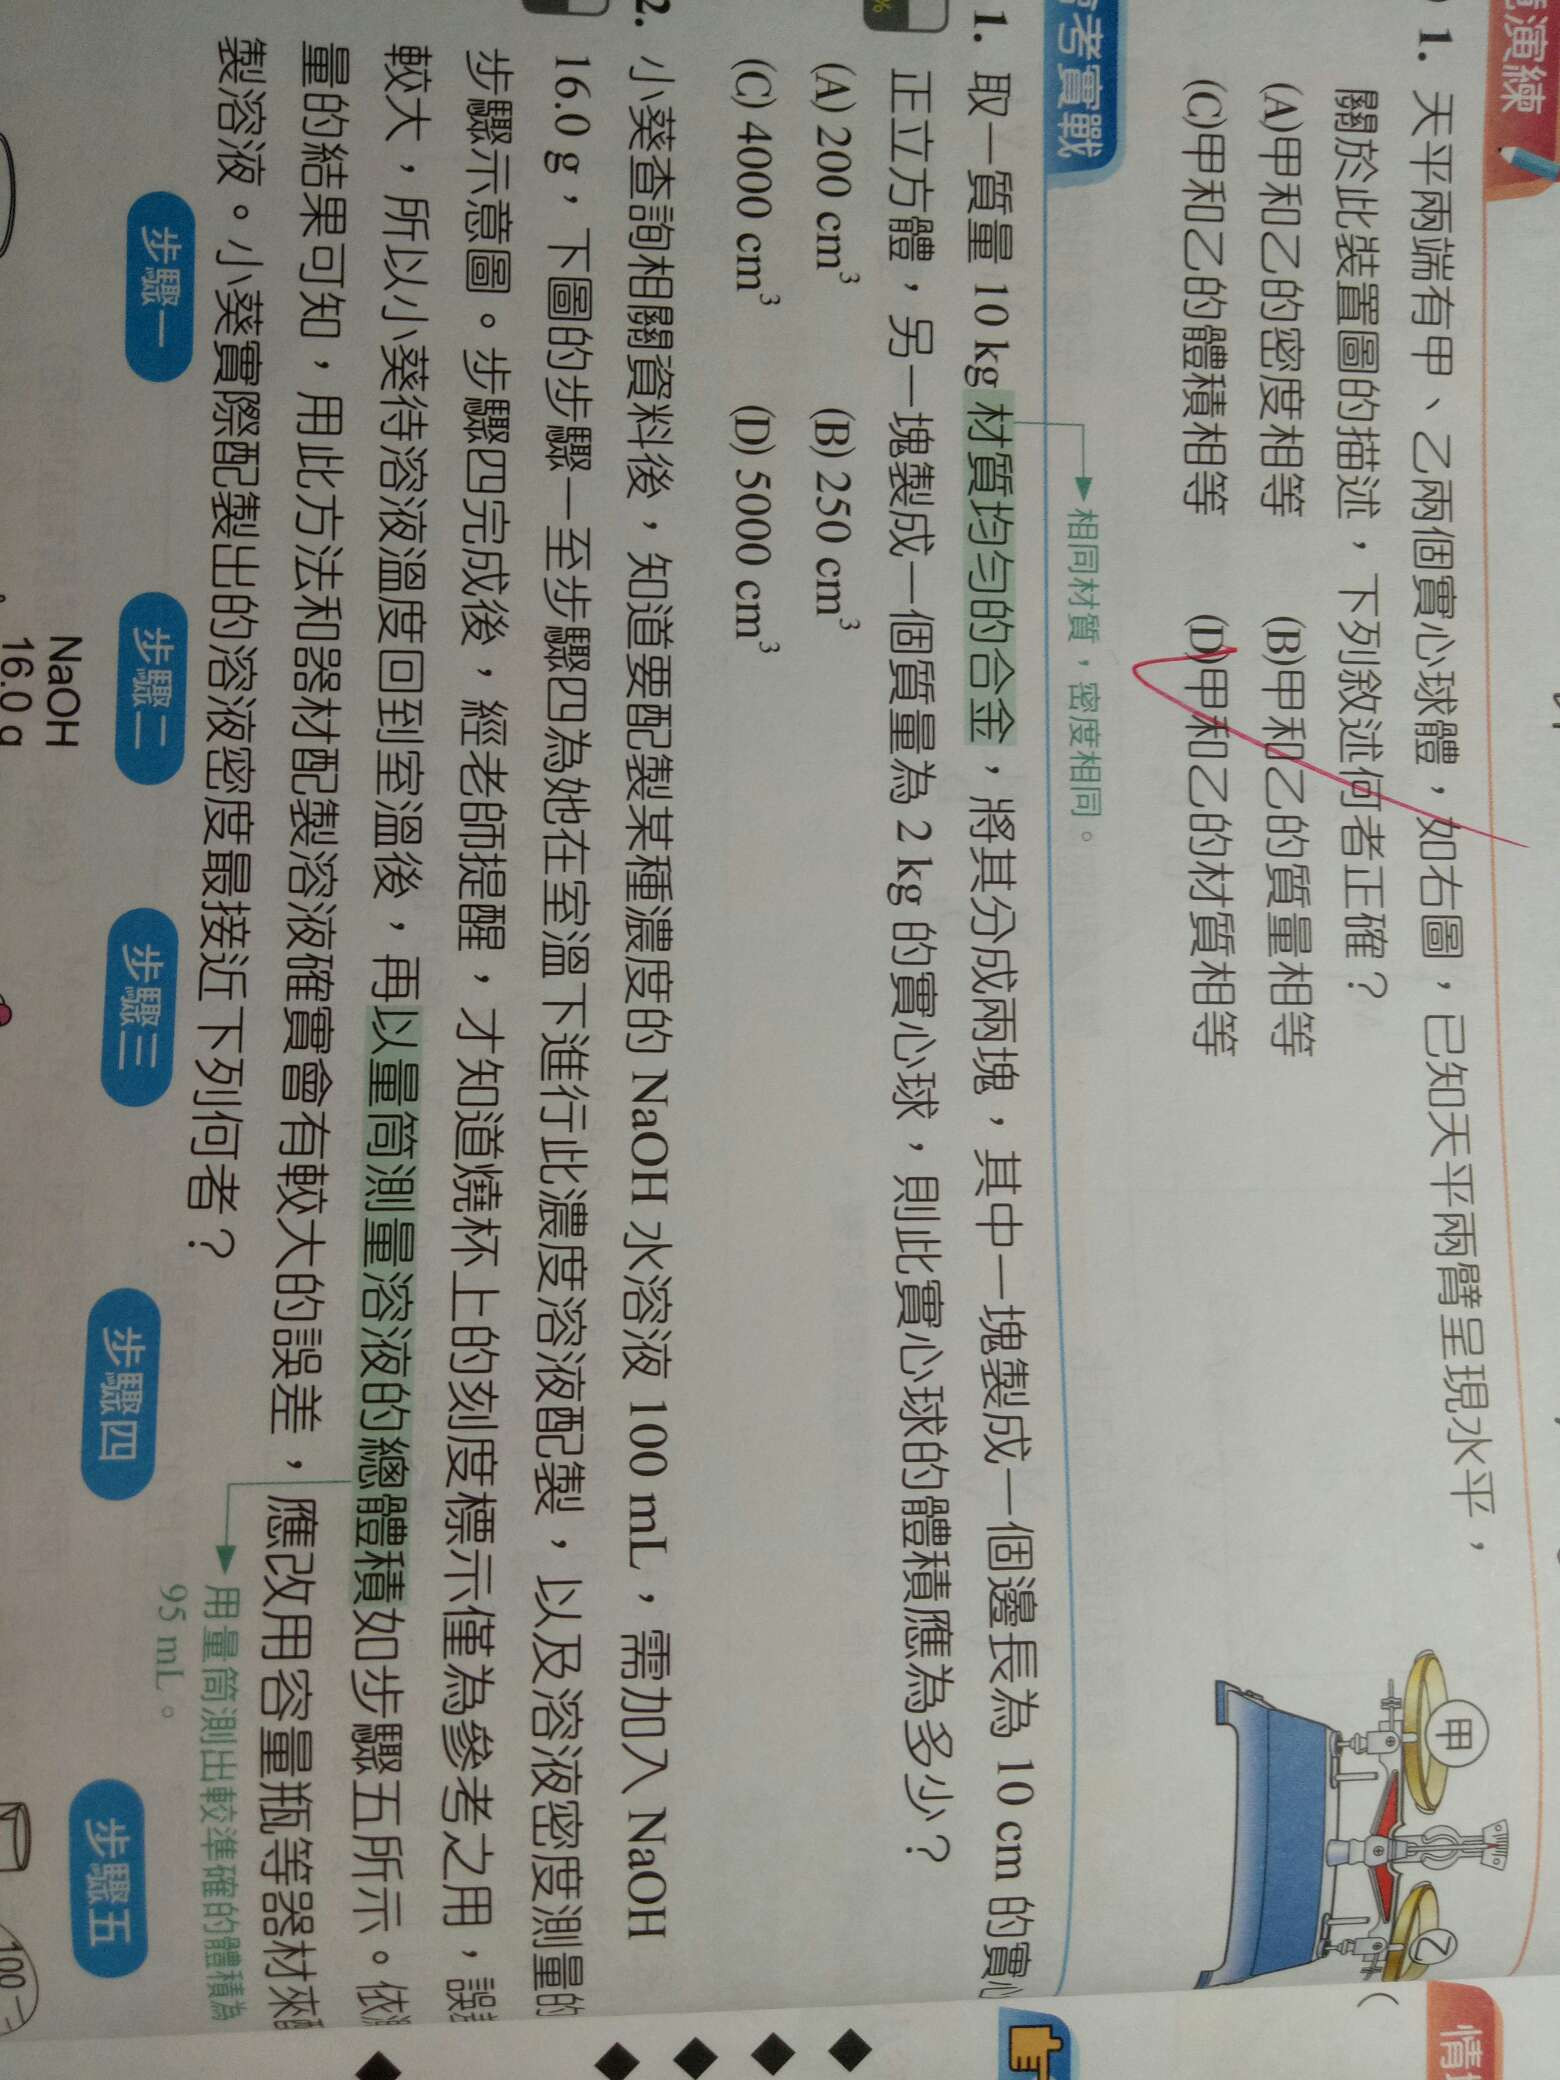 演練
1. 天平兩端有甲、乙兩個實心球體，如右圖，已知天平兩臂呈現水平，
關於此裝置圖的描述，下列敘述何者正確？
(A)甲和乙的密度相等 (B)甲和乙的質量相等
(C)甲和乙的體積相等 (D)甲和乙的材質相等
甲
乙
考實戰
相同材質，密度相同。
1. 取一質量 10 kg 材質均勻的合金，將其分成兩塊，其中一塊製成一個邊長為 10 cm 的實心
正立方體，另一塊製成一個質量為 2 kg 的實心球，則此實心球的體積應為多少？
(A) 200 cm³ (B) 250 cm³
(C) 4000 cm³ (D) 5000 cm³
%
2. 小葵查詢相關資料後，知道要配製某種濃度的 NaOH 水溶液 100 mL，需加入 NaOH
16.0 g，下圖的步驟一至步驟四為她在室溫下進行此濃度溶液配製，以及溶液密度測量的
步驟示意圖。步驟四完成後，經老師提醒，才知道燒杯上的刻度標示僅為參考之用，誤差
較大，所以小葵待溶液溫度回到室溫後，再以量筒測量溶液的總體積如步驟五所示。依測
量的結果可知，用此方法和器材配製溶液確實會有較大的誤差，應改用容量瓶等器材來配
製溶液。小葵實際配製出的溶液密度最接近下列何者？
用量筒測出較準確的體積為
95 mL。
步驟一
步驟二
步驟三
步驟四
步驟五
NaOH
16.0 g
100
情